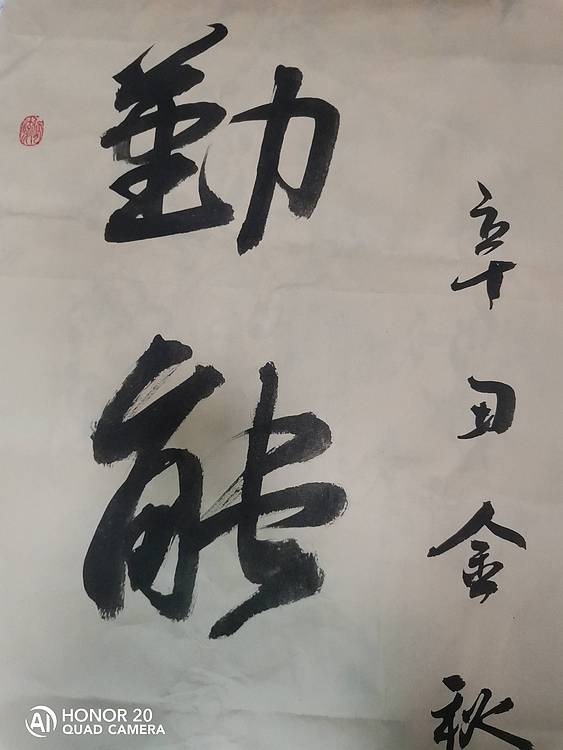 辛丑金秋
勤能
AI HONOR 20
QUAD CAMERA